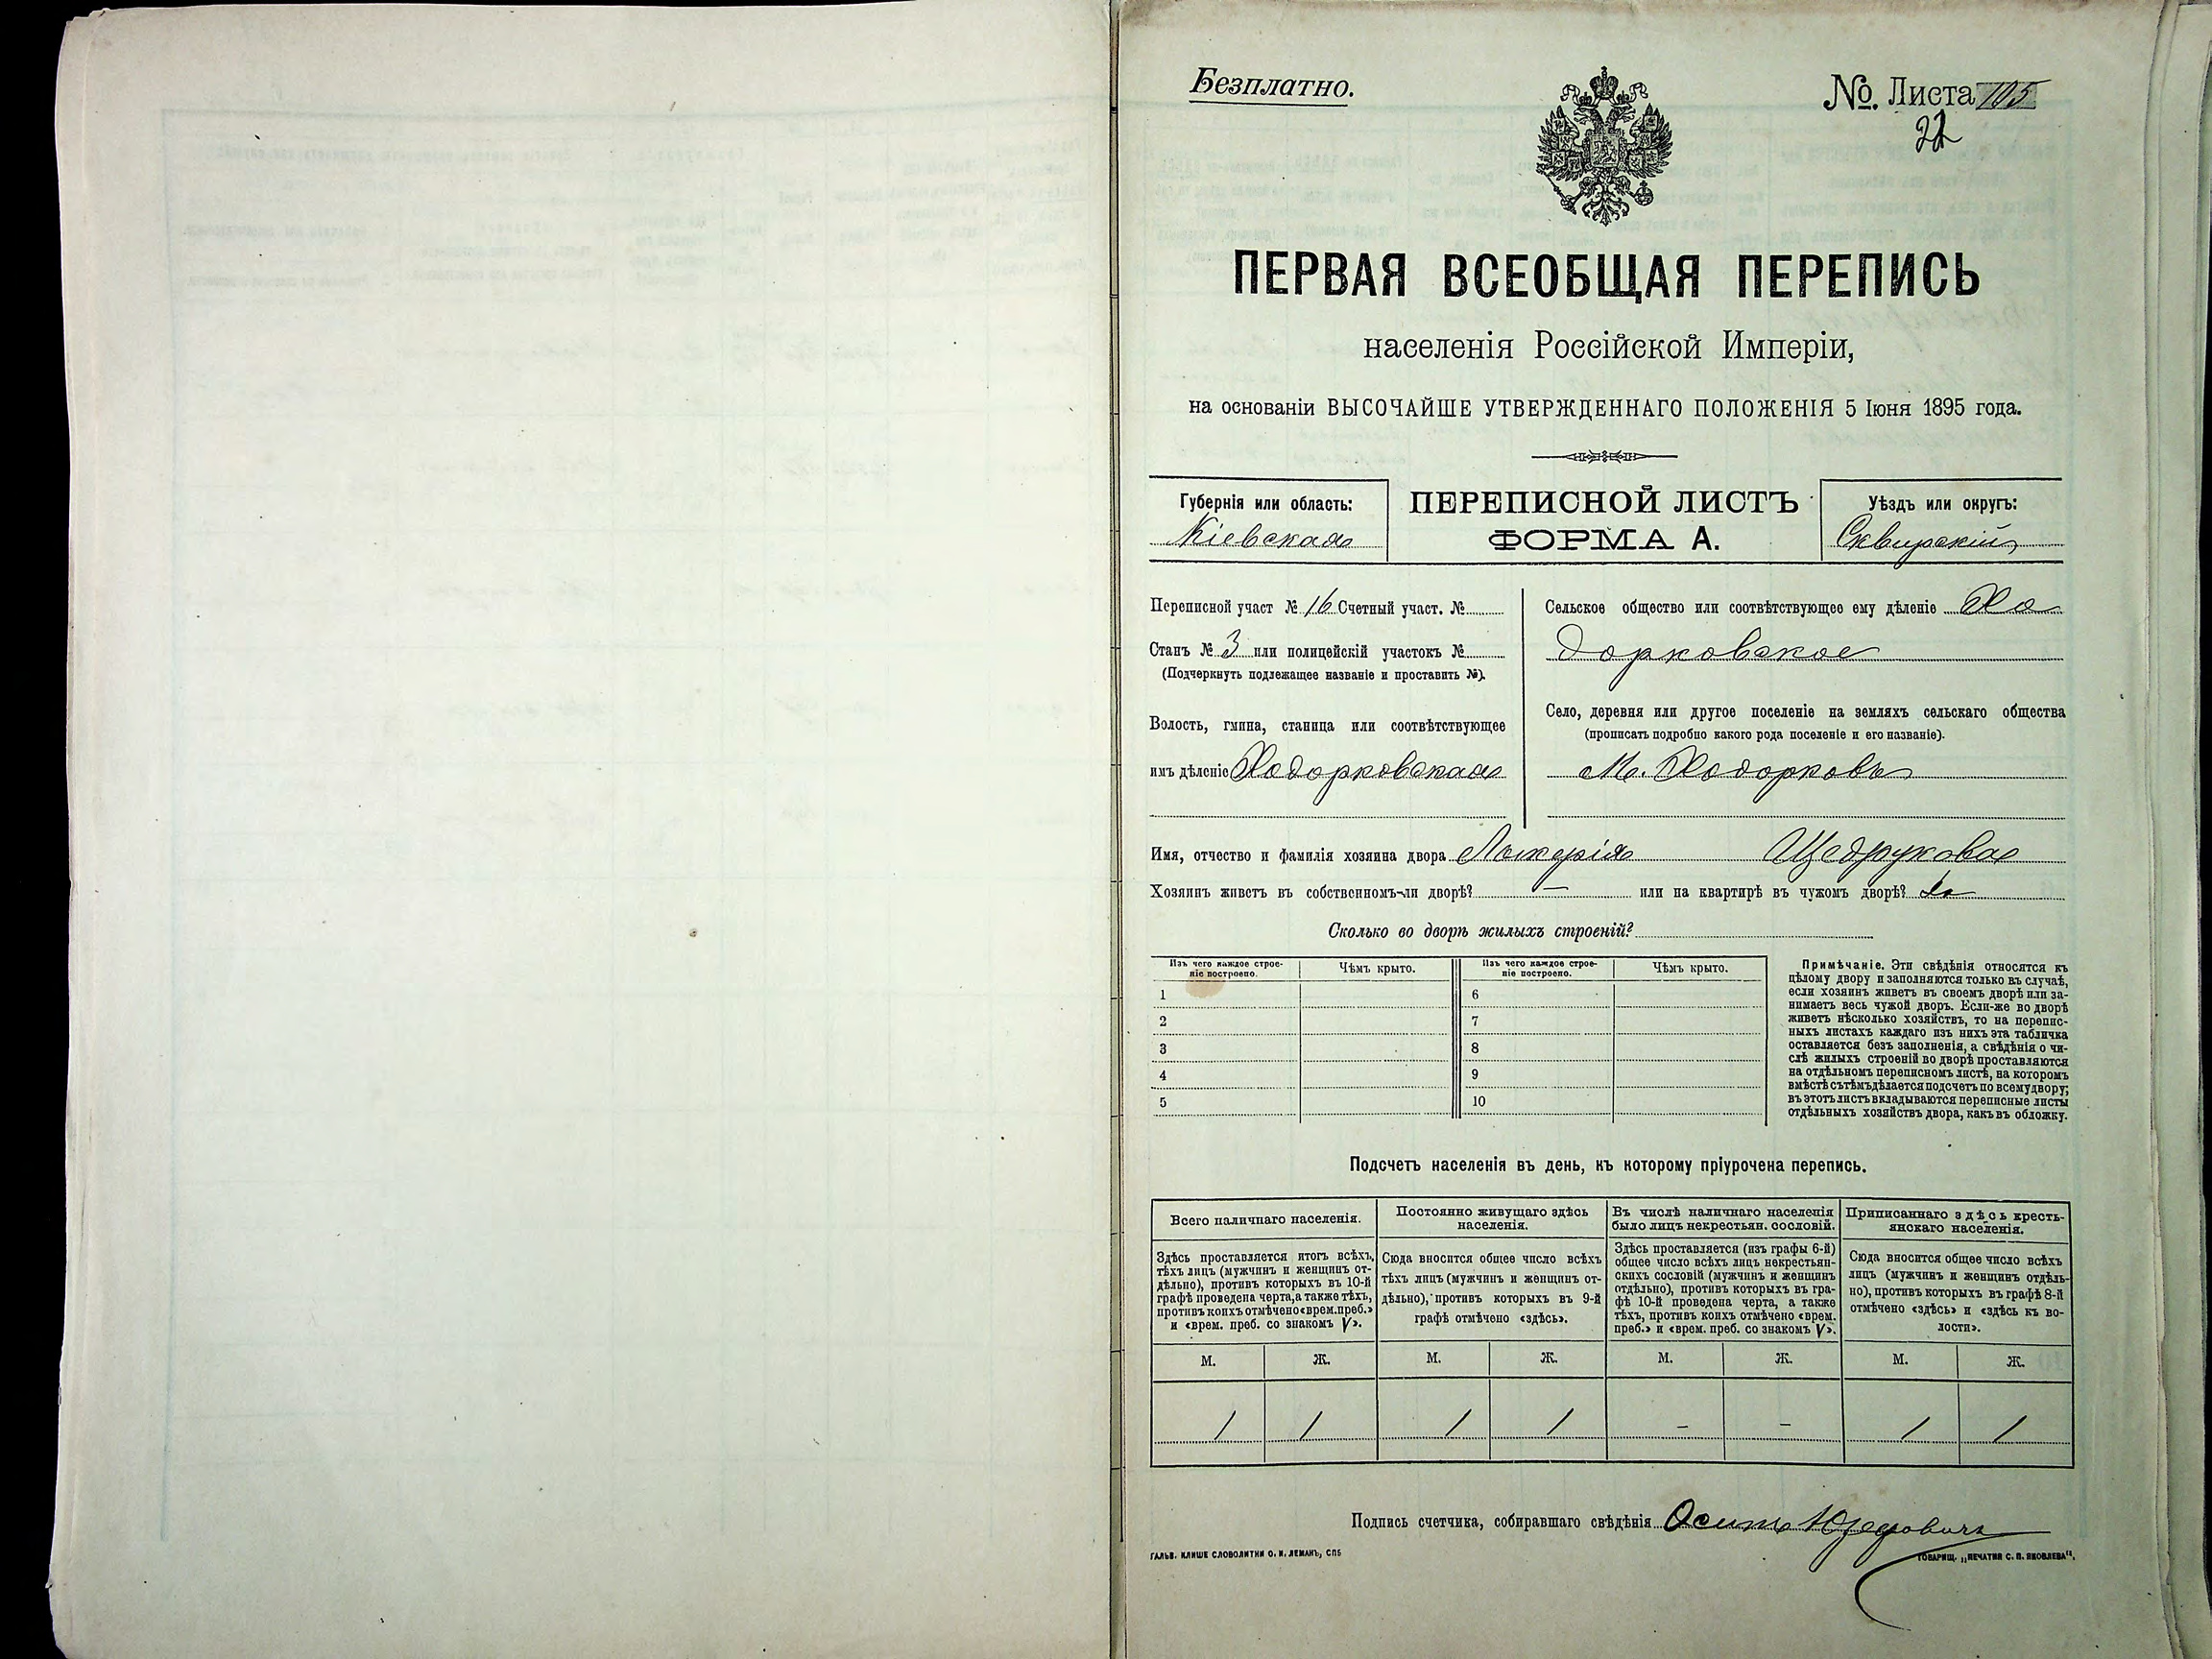 Безплатно.
№. Листа 105
22
ПЕРВАЯ ВСЕОБЩАЯ ПЕРЕПИСЬ
населенія Россійской Имперіи,
на основаніи ВЫСОЧАЙШЕ УТВЕРЖДЕННАГО ПОЛОЖЕНІЯ 5 Іюня 1895 года.
Губернія или область:
Кіевская
ПЕРЕПИСНОЙ ЛИСТЪ
ФОРМА А.
Уѣздъ или округъ:
Сквирскій
Переписной участ № 16 Счетный участ. №
Станъ № 3 или полицейскій участокъ №
(Подчеркнуть подлежащее названіе и проставить №).
Волость, гмина, станица или соотвѣтствующее
имъ дѣленіе Ходорковская
Сельское общество или соотвѣтствующее ему дѣленіе Хо
дорковское
Село, деревня или другое поселеніе на земляхъ сельскаго общества
(прописать подробно какого рода поселеніе и его названіе).
М. Ходорковъ
Имя, отчество и фамилія хозяина двора Лукерія Щедрукова
Хозяинъ живетъ въ собственномъ-ли дворѣ? — или на квартирѣ въ чужомъ дворѣ? да
Сколько во дворѣ жилыхъ строеній?
Изъ чего каждое строе-
ніе построено.
Чѣмъ крыто.
Изъ чего каждое строе-
ніе построено.
Чѣмъ крыто.
1
6
2
7
3
8
4
9
5
10
Примѣчаніе. Эти свѣдѣнія относятся къ
цѣлому двору и заполняются только въ случаѣ,
если хозяинъ живетъ въ своемъ дворѣ или за-
нимаетъ весь чужой дворъ. Если-же во дворѣ
живетъ нѣсколько хозяйствъ, то на перепис-
ныхъ листахъ каждаго изъ нихъ эта табличка
оставляется безъ заполненія, а свѣдѣнія о чи-
слѣ жилыхъ строеній во дворѣ проставляются
на отдѣльномъ переписномъ листѣ, на которомъ
вмѣстѣ съ тѣмъ дѣлается подсчетъ по всему двору;
въ этотъ листъ вкладываются переписные листы
отдѣльныхъ хозяйствъ двора, какъ въ обложку.
Подсчетъ населенія въ день, къ которому пріурочена перепись.
Всего наличнаго населенія.
Здѣсь проставляется итогъ всѣхъ,
тѣхъ лицъ (мужчинъ и женщинъ от-
дѣльно), противъ которыхъ въ 10-й
графѣ проведена черта, а также тѣхъ,
противъ коихъ отмѣчено «врем. преб.»
и «врем. преб. со знакомъ V».
Постоянно живущаго здѣсь
населенія.
Сюда вносится общее число всѣхъ
тѣхъ лицъ (мужчинъ и женщинъ от-
дѣльно), противъ которыхъ въ 9-й
графѣ отмѣчено «здѣсь».
Въ числѣ наличнаго населенія
было лицъ некрестьян. сословій.
Здѣсь проставляется (изъ графы 6-й)
общее число всѣхъ лицъ некрестьян-
скихъ сословій (мужчинъ и женщинъ
отдѣльно), противъ которыхъ въ гра-
фѣ 10-й проведена черта, а также
тѣхъ, противъ коихъ отмѣчено «врем.
преб.» и «врем. преб. со знакомъ V».
Приписаннаго здѣсь кресть-
янскаго населенія.
Сюда вносится общее число всѣхъ
лицъ (мужчинъ и женщинъ отдѣль-
но), противъ которыхъ въ графѣ 8-й
отмѣчено «здѣсь» и «здѣсь къ во-
лости».
М. Ж. М. Ж. М. Ж. М. Ж.
1 1 1 1 - - 1 1
Подпись счетчика, собиравшаго свѣдѣнія Осипъ
ГАЛЬВ. КЛИШЕ СЛОВОЛИТНИ О. И. ЛЕМАНЪ, СПБ
ТОВАРИЩ. „ПЕЧАТНЯ С. П. ЯКОВЛЕВА".